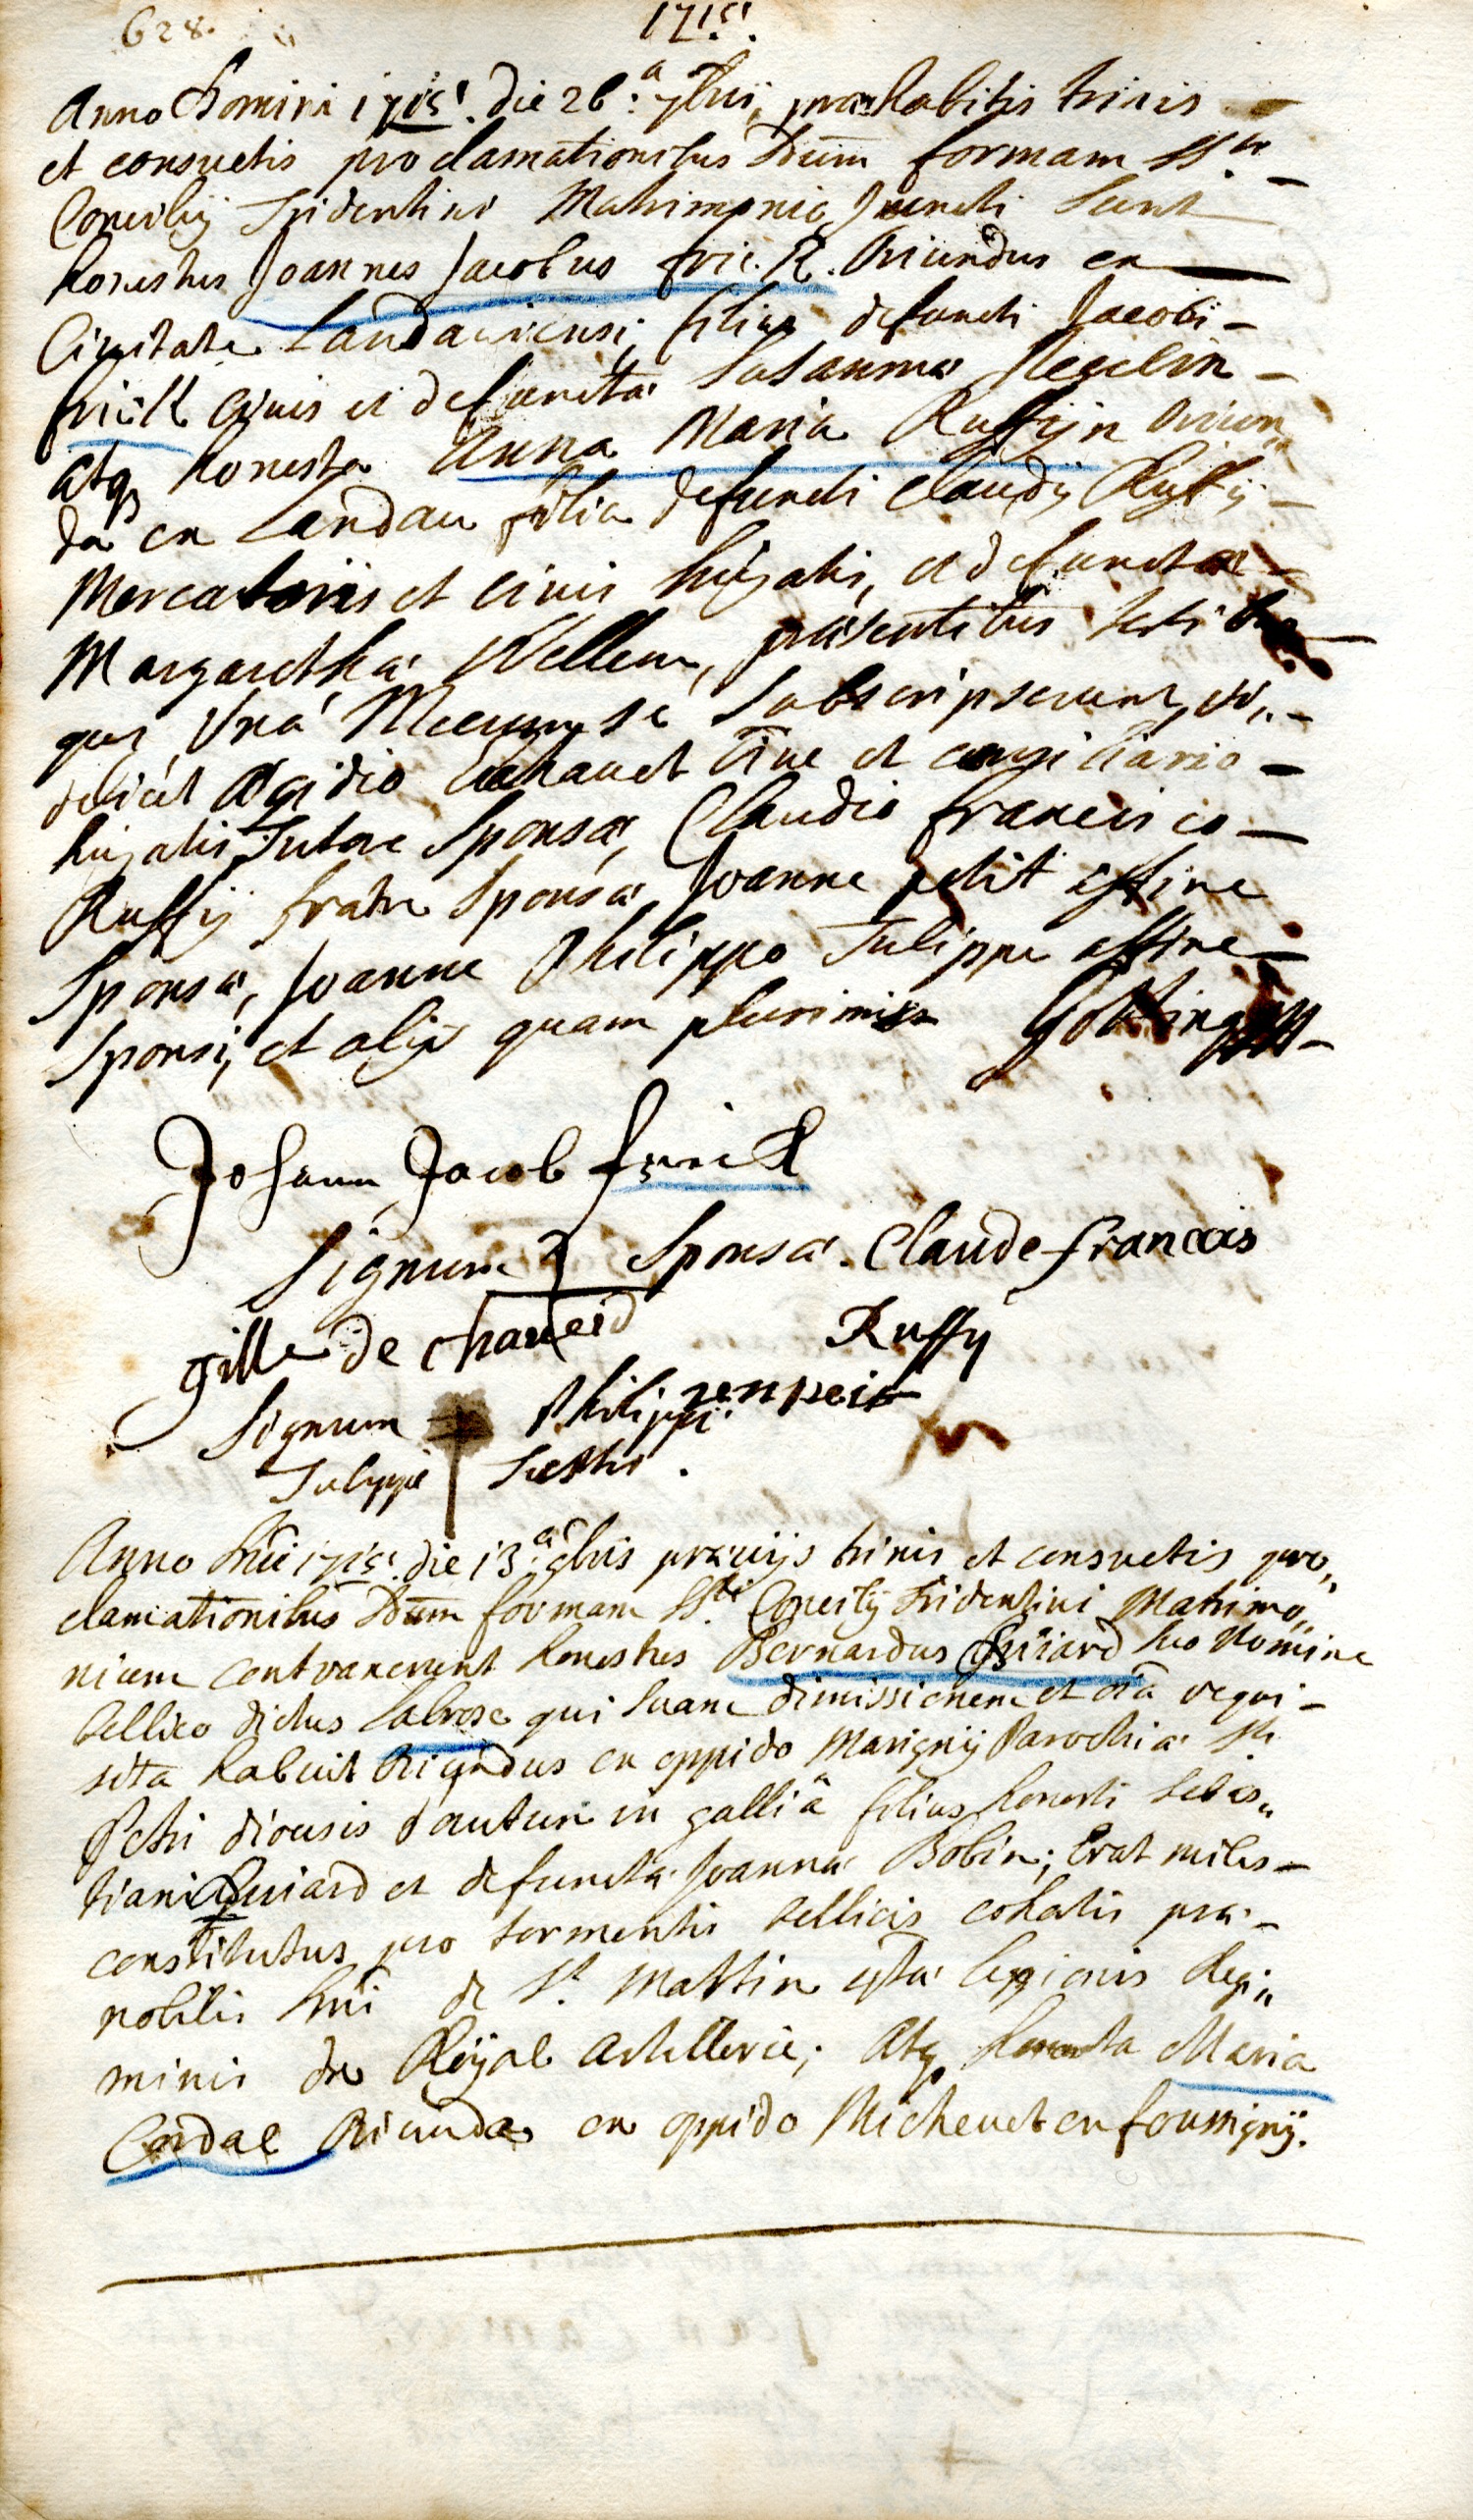 628.
1715.
Anno Domini 1715. die 26.a 7bris, praehabitis trinis
et consuetis proclamationibus Scdum formam SS.ti
Concilij Tridentini Matrimonio Juncti Sunt
honestus Joannes Jacobus frick. Oriundus ex
Civitate Landaviensi, filius defuncti Jacobi
frick Civis et defunctae Susannae
atq honesta Anna Maria Ruffyin oriun„
da ex Landau filia defuncti Claudij Ruffij
Mercatoris et civis hujatis, et defunctae
Margarethae Wellem, praesentibus testibus
qui Una Mecum se subscripserunt, vi„
delicet Aegidio Chavet Cive et
hujatis, Tutore Sponsae, Claudio francisco
Ruffij fratre Sponsae, Joanne petit affine
Sponsae, Joanne Philippo Tulippe affine
Sponsi, et alijs quam plurimis
Johann Jacob frick
Signum Sponsae. Claude francois
gille de chaueid Ruffy
Signum Philippi
Tulippe Testis.
Anno Dni 1715. die 13.a 8bris praevijs trinis et consuetis pro„
clamationibus Scdum formam SS.ti Concilij Tridentini Matrimo„
nium contraxerunt honestus Bernardus Guiard suo Nomine
bellico dictus Labrose qui suam dimissionem et oia requi-
sita habuit Oriundus ex oppido Marignij Parochiae Sti
Petri diocesis d'autun in galliâ filius honesti Sebas„
tiani Guiard et defunctae Joannae Bobin; Erat miles
constitutus pro tormentis bellicis cohortis prae-
nobilis Dni de St. Mattin legionis Regi„
minis du Roijal Artillerie; Atq honesta Maria
Cordae Oriunda ex oppido Michenet en foussignij.